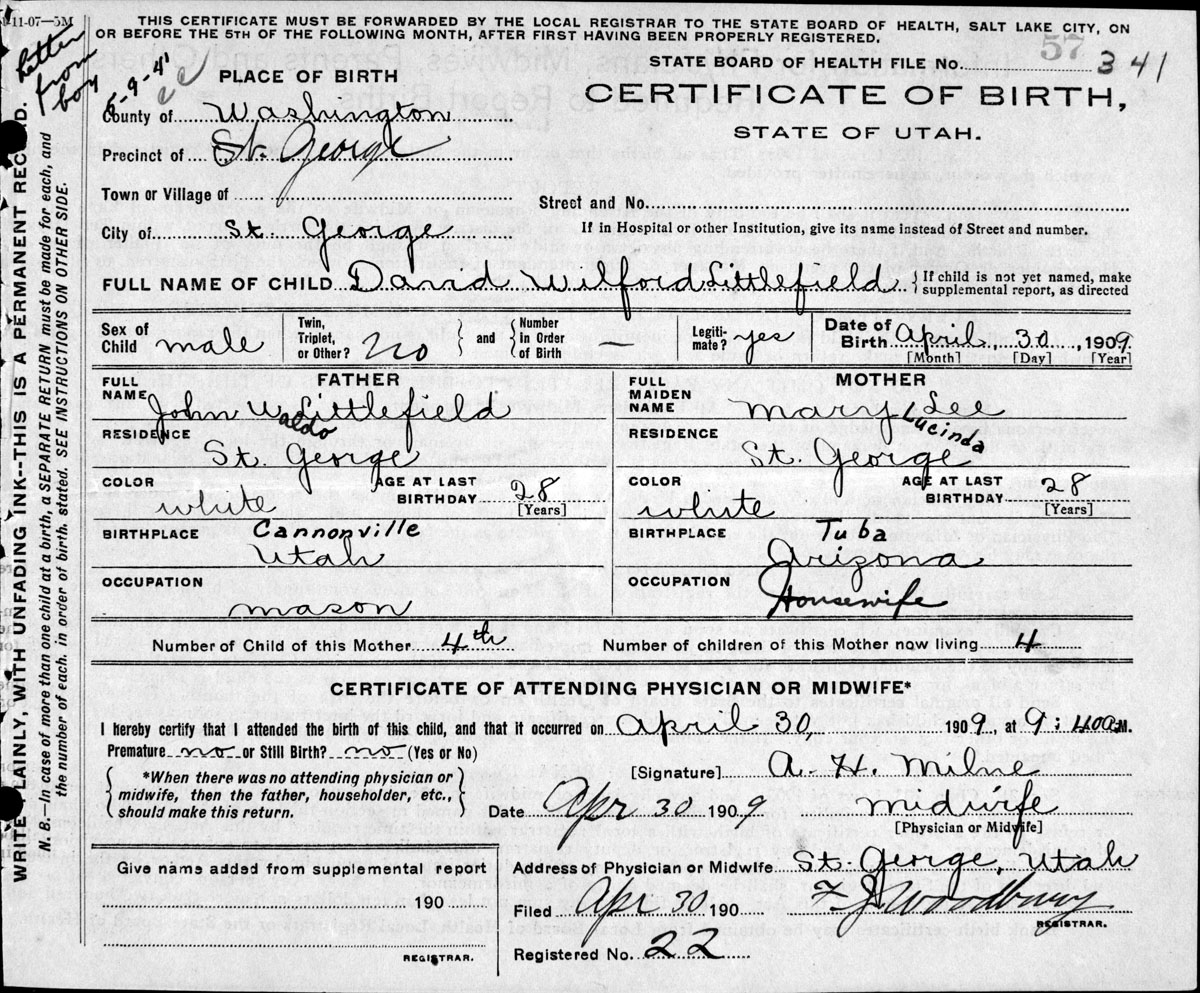 -11-07—5M
THIS CERTIFICATE MUST BE FORWARDED BY THE LOCAL REGISTRAR TO THE STATE BOARD OF HEALTH, SALT LAKE CITY, ON
OR BEFORE THE 5TH OF THE FOLLOWING MONTH, AFTER FIRST HAVING BEEN PROPERLY REGISTERED.
Letter
from
boy
5-9-41
57
STATE BOARD OF HEALTH FILE No. 341
PLACE OF BIRTH
CERTIFICATE OF BIRTH,
STATE OF UTAH.
County of Washington
Precinct of St. George
Town or Village of
Street and No.
City of St. George
If in Hospital or other Institution, give its name instead of Street and number.
FULL NAME OF CHILD David Wilford Littlefield {If child is not yet named, make
supplemental report, as directed
Sex of Child male
Twin, Triplet, or Other? No } and { Number in Order of Birth —
Legiti-mate? yes
Date of Birth April 30, 1909
[Month] [Day] [Year]
FATHER
FULL NAME John Waldo Littlefield
RESIDENCE St. George
COLOR white
AGE AT LAST BIRTHDAY 28
[Years]
BIRTHPLACE Cannonville
Utah
OCCUPATION
mason
MOTHER
FULL MAIDEN NAME Mary Lucinda Lee
RESIDENCE St. George
COLOR white
AGE AT LAST BIRTHDAY 28
[Years]
BIRTHPLACE Tuba
Arizona
OCCUPATION Housewife
Number of Child of this Mother 4th
Number of children of this Mother now living 4
CERTIFICATE OF ATTENDING PHYSICIAN OR MIDWIFE*
I hereby certify that I attended the birth of this child, and that it occurred on April 30, 1909, at 9:40 a.M.
Premature no or Still Birth? no (Yes or No)
{*When there was no attending physician or
midwife, then the father, householder, etc.,
should make this return.}
[Signature] A. H. Milne
Date Apr 30 1909 midwife
[Physician or Midwife]
Give name added from supplemental report
190
REGISTRAR.
Address of Physician or Midwife St. George, Utah
Filed Apr 30 190 F J Woodbury
REGISTRAR.
Registered No. 22
WRITE PLAINLY, WITH UNFADING INK--THIS IS A PERMANENT RECORD.
N. B.—In case of more than one child at a birth, a SEPARATE RETURN must be made for each, and
the number of each, in order of birth, stated. SEE INSTRUCTIONS ON OTHER SIDE.